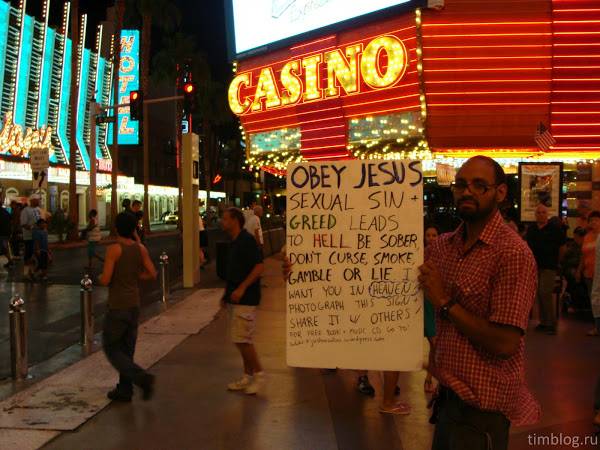 HOTEL
CASINO
OBEY JESUS
SEXUAL SIN +
GREED LEADS
TO HELL BE SOBER,
DON'T CURSE, SMOKE,
GAMBLE OR LIE. I
WANT YOU IN HEAVEN!
PHOTOGRAPH THIS SIGN +
SHARE IT W/ OTHERS!
FOR FREE BOOK + MUSIC CD GO TO:
timblog.ru